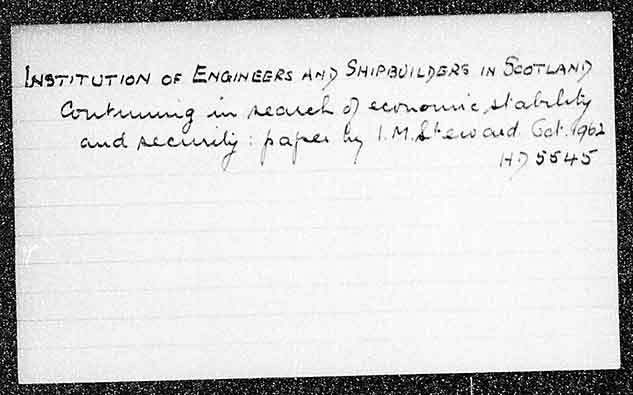 INSTITUTION OF ENGINEERS AND SHIPBUILDERS IN SCOTLAND
Continuing in search of economic stability
and security : paper by I. M. Steward Oct. 1962
HD 5545